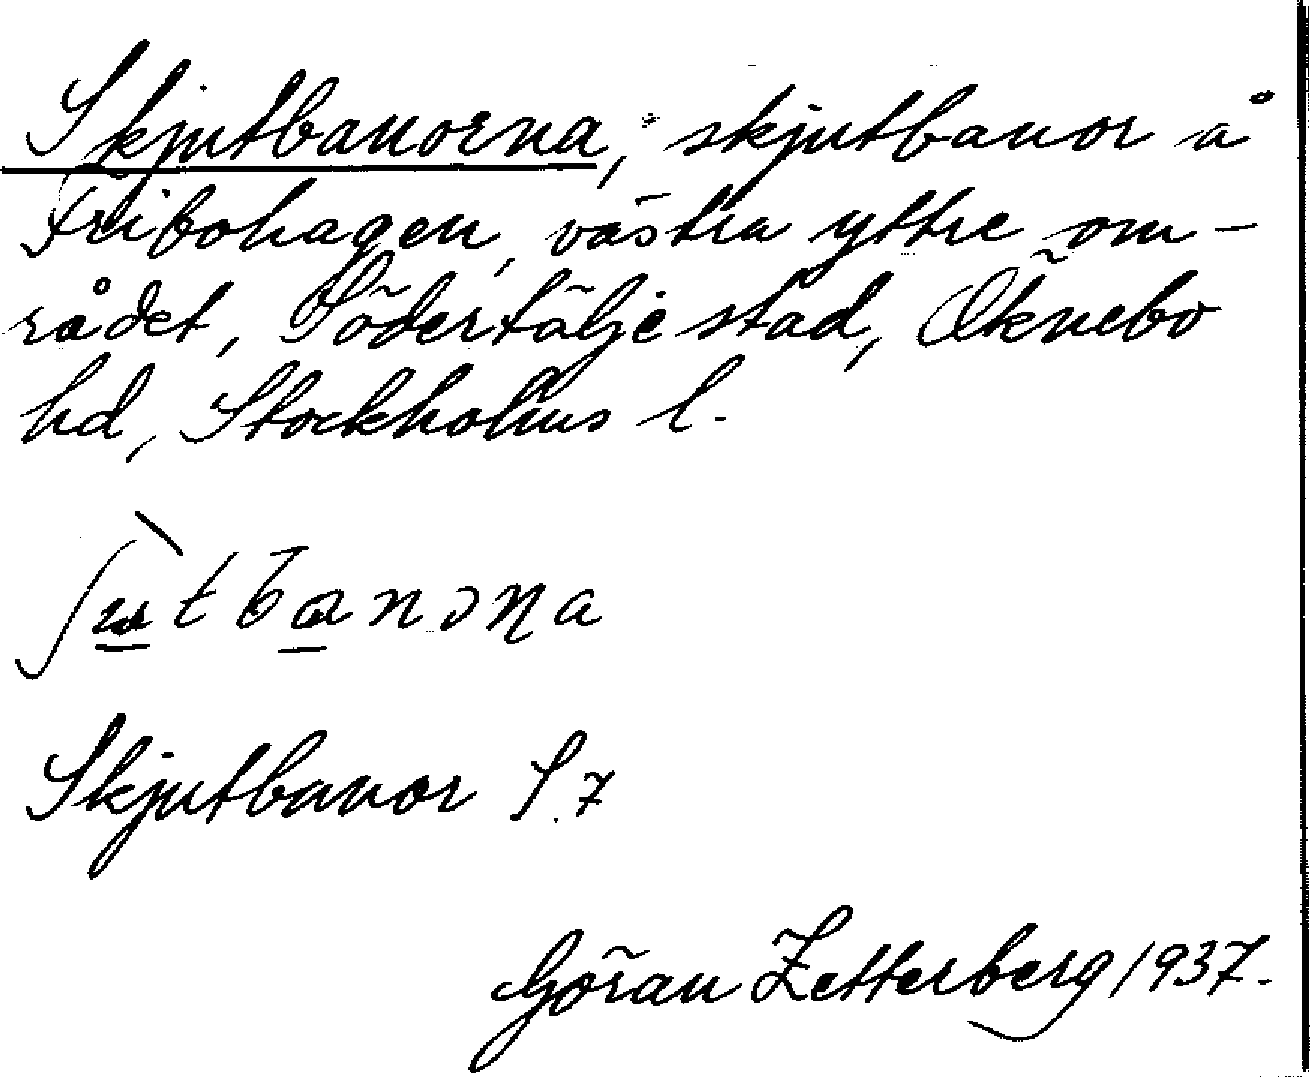 Skjutbanorna, skjutbanor å
Fribohagen, västra yttre om-
rådet, Södertälje stad, Öknebo
hd, Stockholms l.
Skjutbanor S. 7
Göran Zetterberg 1937.